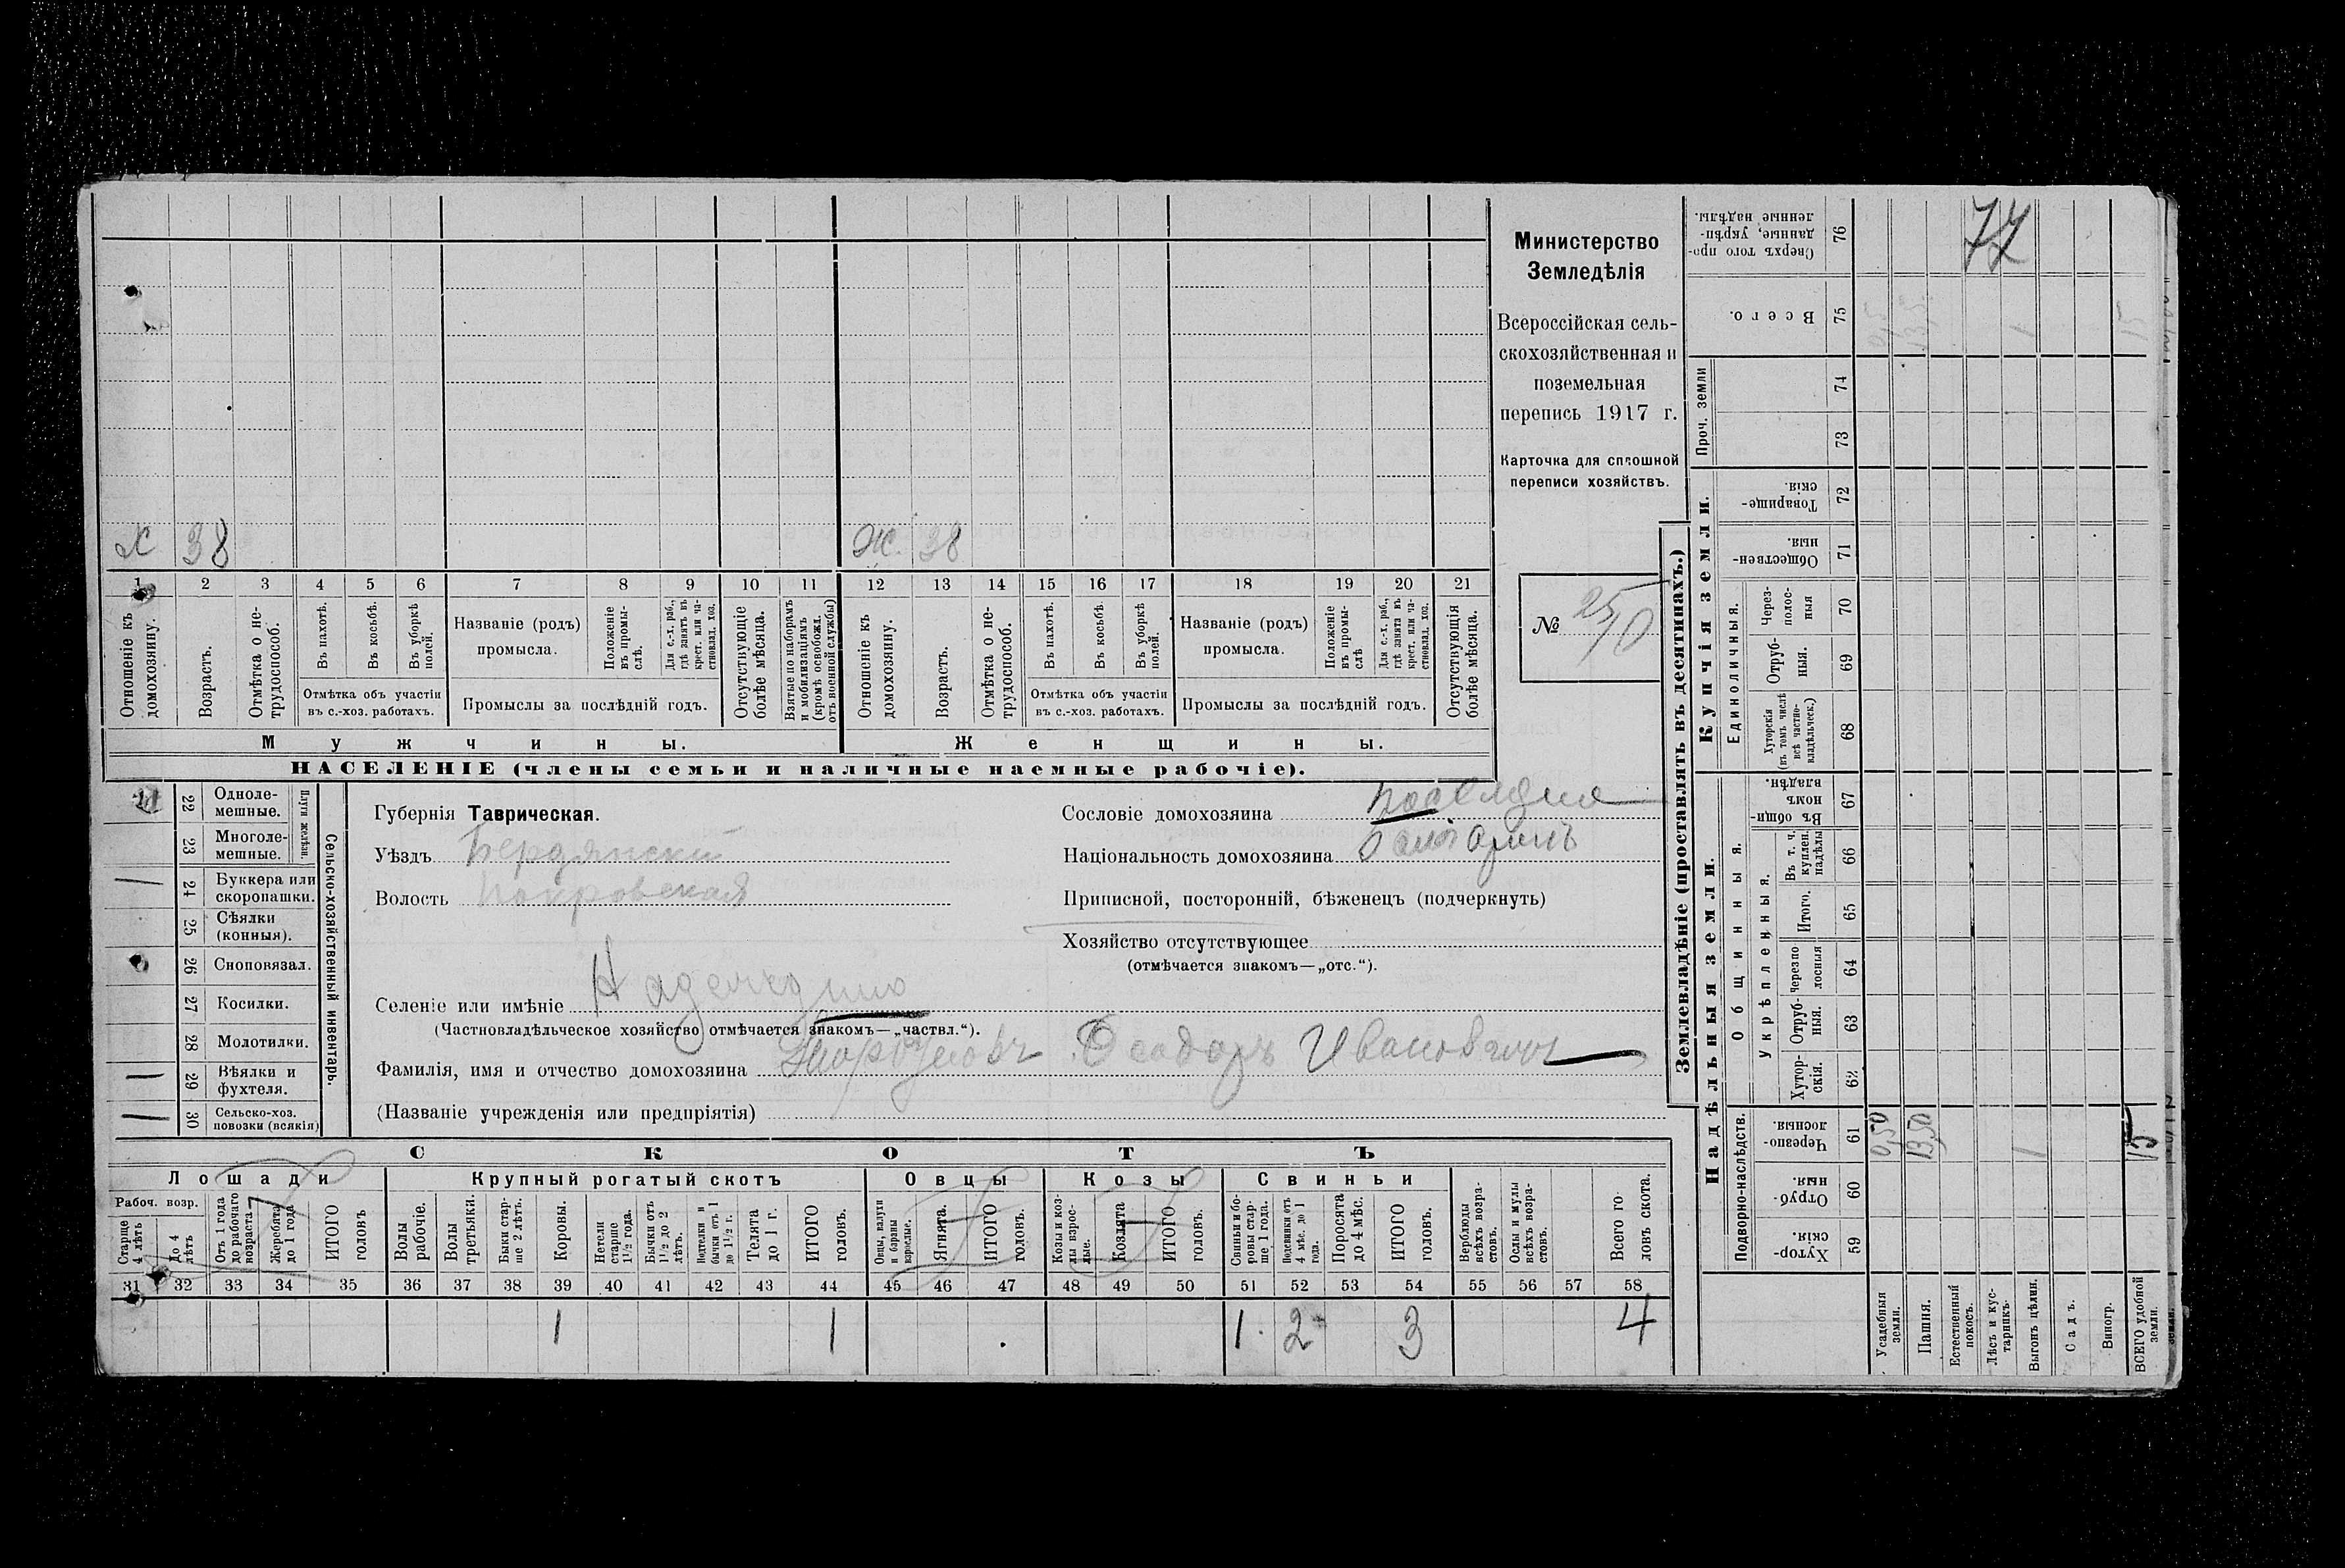 77
Министерство
Земледѣлія
Всероссійская сель-
скохозяйственная и
поземельная
перепись 1917 г.
Карточка для сплошной
переписи хозяйствъ.
№
Х 38
Ж. 38
1 2 3 4 5 6 7 8 9 10 11 12 13 14 15 16 17 18 19 20 21
Отношеніе къ домохозяину.
Возрастъ.
Отмѣтка о не-трудоспособ.
Въ пахотѣ.
Въ косьбѣ.
Въ уборкѣ полей.
Отмѣтка объ участіи
въ с.-хоз. работахъ.
Названіе (родъ)
промысла.
Положеніе въ промы-слѣ.
Для с.-х. раб., гдѣ занятъ въ крест. или ча-стновлад. хоз.
Промыслы за послѣдній годъ.
Отсутствующіе болѣе мѣсяца.
Взятые по наборамъ и мобилизаціямъ (кромѣ освобожд. отъ военной службы)
Отношеніе къ домохозяину.
Возрастъ.
Отмѣтка о не-трудоспособ.
Въ пахотѣ.
Въ косьбѣ.
Въ уборкѣ полей.
Отмѣтка объ участіи
въ с.-хоз. работахъ.
Названіе (родъ)
промысла.
Положеніе въ промы-слѣ
Для с.-х. раб., гдѣ занята въ крест. или ча-стновлад. хоз.
Промыслы за послѣдній годъ.
Отсутствующія болѣе мѣсяца.
Мужчины.
Женщины.
НАСЕЛЕНІЕ (члены семьи и наличные наемные рабочіе).
Сельско-хозяйственный инвентарь.
Плуги желѣзн.
22 Одноле-мешные.
23 Многоле-мешные.
24 Буккера или скоропашки.
25 Сѣялки (конныя).
26 Сноповязал.
27 Косилки.
28 Молотилки.
29 Вѣялки и фухтеля.
30 Сельско-хоз. повозки (всякія)
Губернія Таврическая.
Уѣздъ Бердянскій
Волость Покровская
Селеніе или имѣніе
(Частновладѣльческое хозяйство отмѣчается знакомъ—„частвл.“).
Фамилія, имя и отчество домохозяина Ѳеодоръ Ивановичъ
(Названіе учрежденія или предпріятія)
Сословіе домохозяина
Національность домохозяина
Приписной, посторонній, бѣженецъ (подчеркнуть)
Хозяйство отсутствующее
(отмѣчается знакомъ—„отс.“).
СКОТЪ
Лошади
Рабоч. возр.
Крупный рогатый скотъ
Овцы
Козы
Свиньи
Старше 4 лѣтъ
До 4 лѣтъ
Отъ 1 года до рабочаго возраста
Жеребята до 1 года
ИТОГО головъ
Волы рабочіе.
Волы третьяки.
Быки стар-ше 2 лѣтъ.
Коровы.
Нетели старше 1½ года.
Бычки отъ 1½ до 2 лѣтъ.
Подтелки и бычки отъ 1 до 1½ г.
Телята до 1 г.
ИТОГО головъ.
Овцы, валухи и бараны взрослые.
Ягнята.
ИТОГО головъ.
Козы и коз-лы взрос-лые.
Козлята
ИТОГО головъ.
Свиньи и бо-ровы стар-ше 1 года.
Подсвинки отъ 4 мѣс. до 1 года.
Поросята до 4 мѣс.
ИТОГО головъ.
Верблюды всѣхъ возра-стовъ.
Ослы и мулы всѣхъ возра-стовъ.
Всего го-ловъ скота.
31 32 33 34 35 36 37 38 39 40 41 42 43 44 45 46 47 48 49 50 51 52 53 54 55 56 57 58
1 1 1 2 3 4
Землевладѣніе (проставлять въ десятинахъ.)
Надѣльныя земли.
Купчія земли.
Проч. земли
Подворно-наслѣдств.
Общинныя.
Укрѣпленныя.
Единоличныя.
Хутор-скія. 59
Отруб-ныя. 60
Черезпо-лосныя. 61
Хутор-скія. 62
Отруб-ныя. 63
Черезпо-лосныя 64
Итого. 65
Въ т. ч. куплен. надѣлы 66
Въ общи-номъ владѣн. 67
Хуторскія (въ томъ числѣ всѣ частно-владѣльческ.) 68
Отруб-ныя. 69
Через-полос-ныя 70
Обществен-ныя. 71
Товарище-скія. 72
73
74
Всего. 75
Сверхъ того про-данные, укрѣп-ленные надѣлы. 76
Усадебныя земли. 0,50
Пашня. 13,50
Естественный покосъ.
Лѣсъ и кус-тарникъ.
Выгонъ цѣлин. 1
Садъ.
Виногр.
ВСЕГО удобной земли. 15